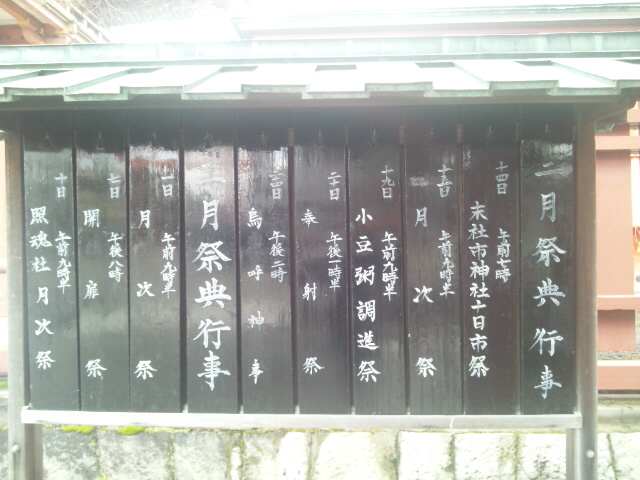 月祭典行事
十四日 午前十時
末社市神社十日市祭
十五日 午前九時半
月次祭
十九日 午前九時半
小豆粥調進祭
二十日 午後一時半
奉射祭
午後二時
烏呼神事
月祭典行事
一日 午前九時半
月次祭
七日
開扉祭
十日 午前九時半
照魂社月次祭